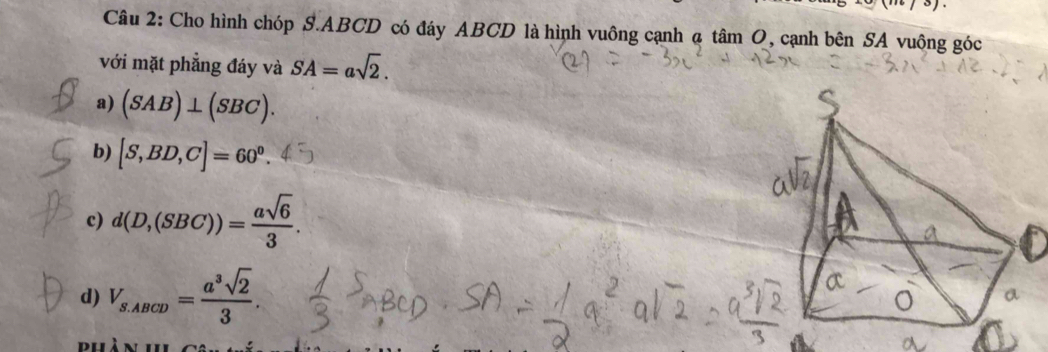 Câu 2: Cho hình chóp S.ABCD có đáy ABCD là hình vuông cạnh a tâm O, cạnh bên SA vuông góc
với mặt phẳng đáy và SA = a√2.
(2) = -3x² + 12x = -3x² + 12
Đ a) (SAB) ⊥ (SBC).
S b) [S, BD, C] = 60⁰. 45
c) d(D,(SBC)) = a√6/3.
Đ d) V_{S.ABCD} = a³√2/3. 1/3 S_{ABCD} . SA = 1/2 a² a√2 = a³√2/3
S
a√2
A
a
D
a
O
a
C
a
PHẦN III.